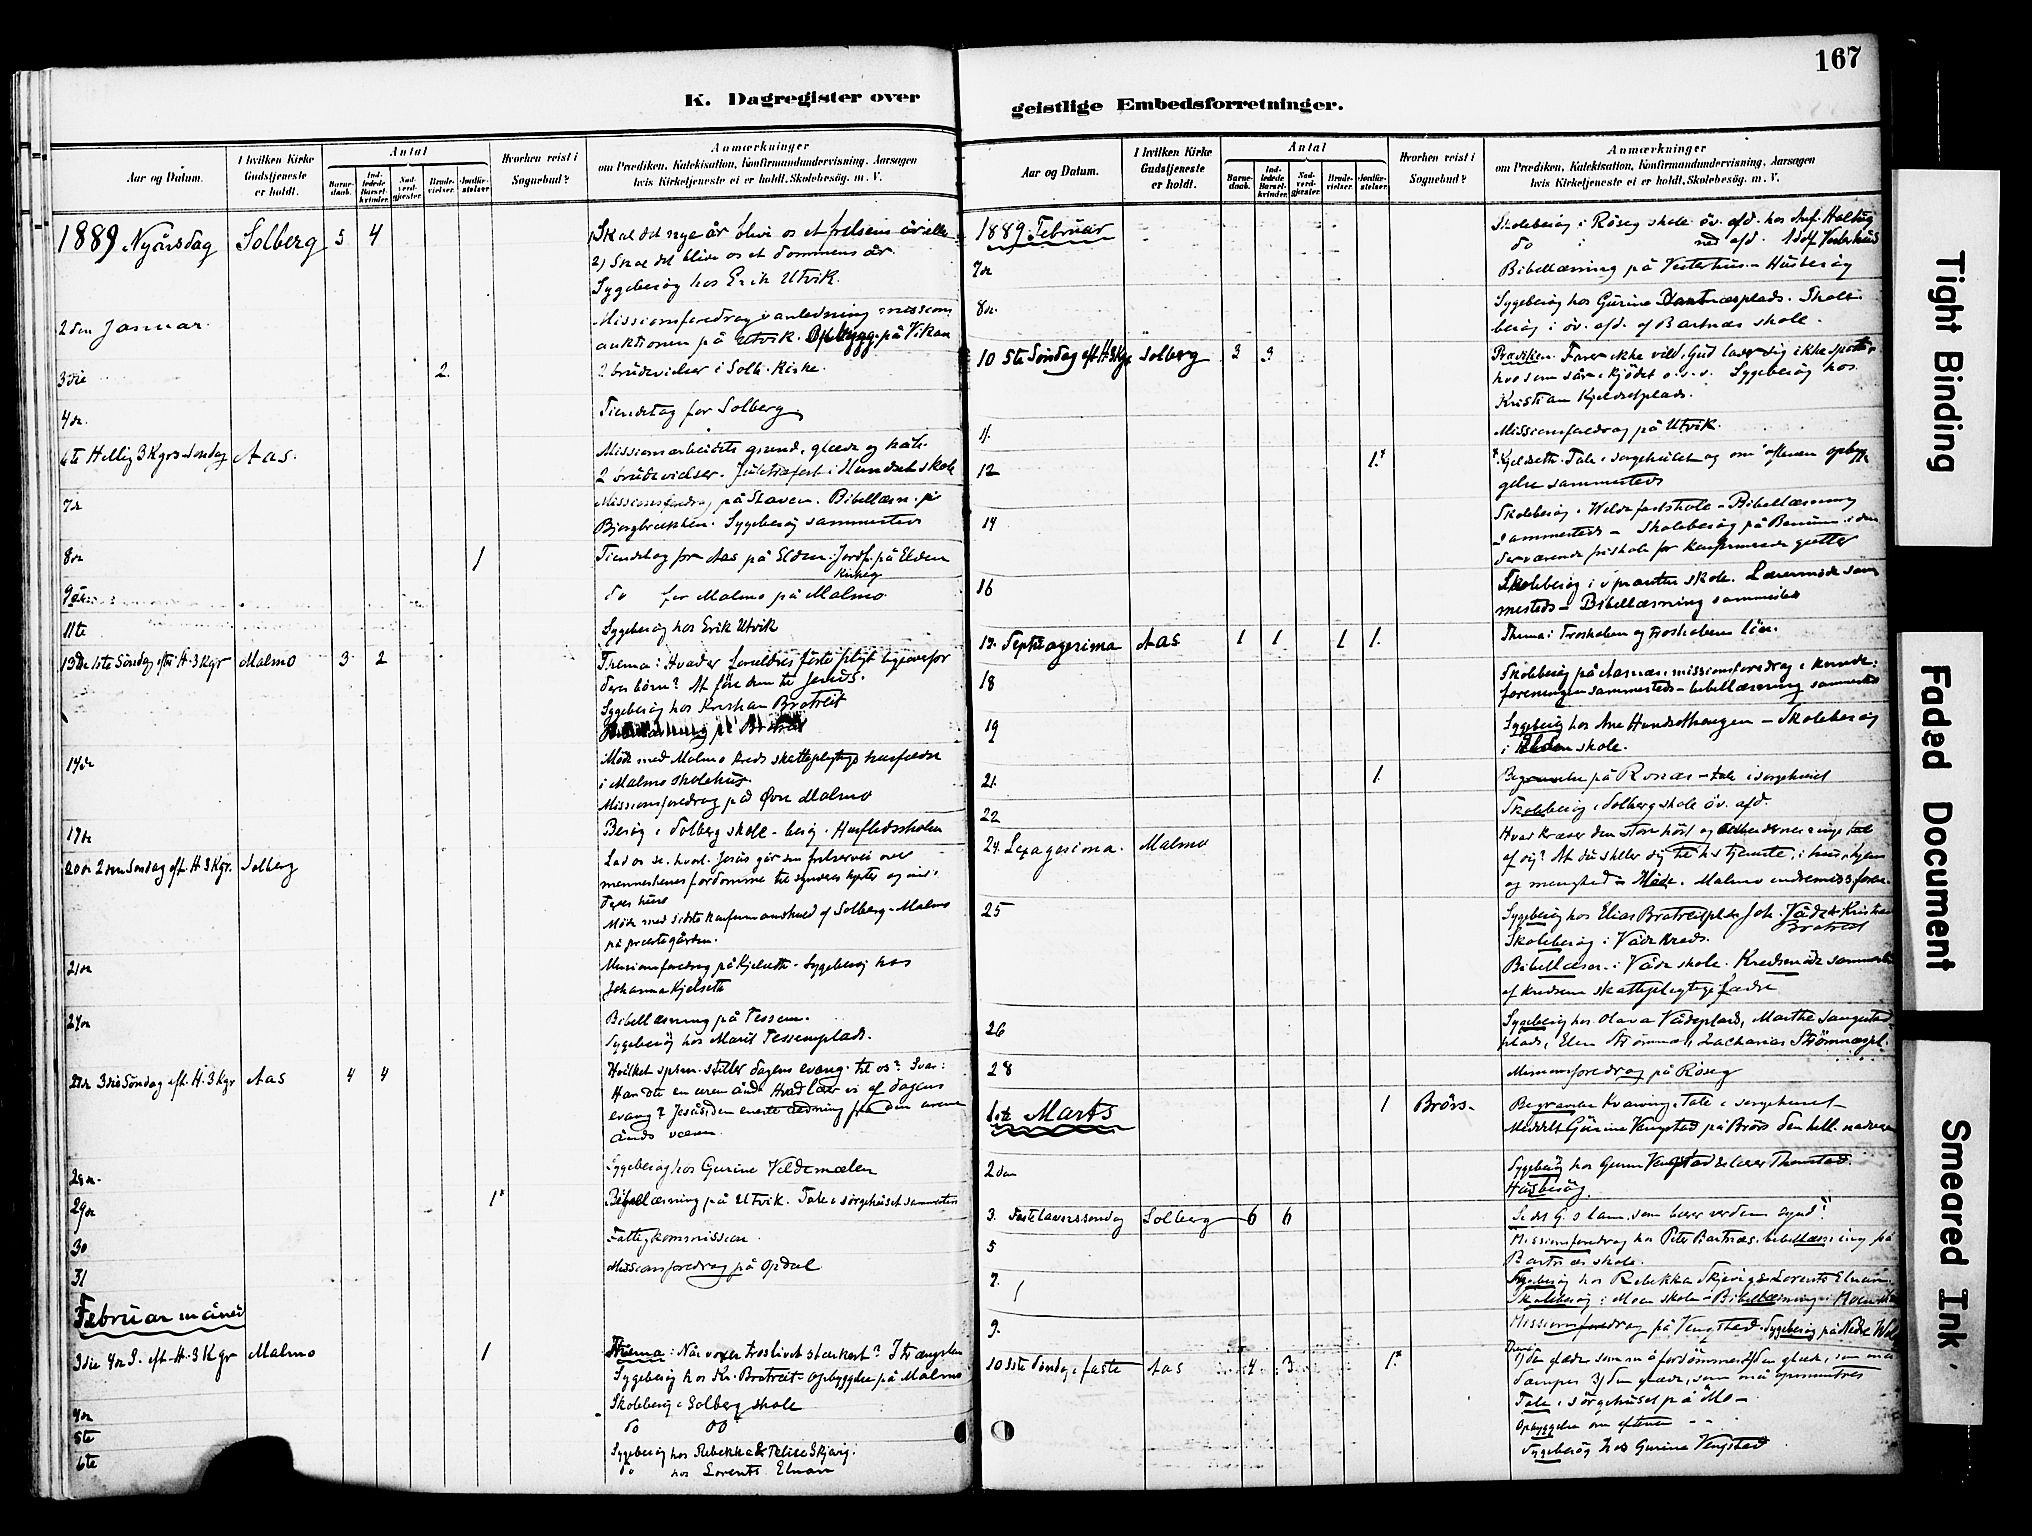 167
K. Dagregister over
geistlige Embedsforretninger.
Aar og Datum.
I hvilken Kirke Gudstjeneste er holdt.
Antal
Barnedaab.
Indledede Barselkvinder.
Nadverdgjester.
Brudevielser.
Jordfæstelser.
Hvorhen reist i Sognebud?
Anmærkninger
om Prædiken, Katekisation, Konfirmandundervisning, Aarsagen
hvis Kirketjeneste ei er holdt, Skolebesög. m. V.
1889 Nyårsdag Solberg 5 4 Skal det nye år blive os et frelsens år eller
2) Skal det blive os et dommens år.
Sygebesög hos Erik Utvik.
2den Januar. Missionsforedrag i anledning missions
auktionen på Utvik. på Vikan
3die 2 2 brudevielser i Solb. Kirke.
4de Tiendetag for Solberg
6te Hellig 3 Kgrs söndag Aas. Missionsarbeidets grund, glæde og håb.
2 brudevielser. Juletræfest i skole
7de Missionsforedrag på Staven. Bibellæsn. på
Sygebesög sammesteds
8de 1 Tiendetag for Aas på Elden. Jordf. på Elden
Kirkeg
9de do for Malmo på Malmo
11te Sygebesög hos Erik Utvik
13de 1ste Söndag efter H. 3 Kgr Malmo 3 2 Thema: Hvad er forældres förste pligt ligeoverfor
deres börn? At före dem til Jesus.
Sygebesög hos Kristian Bratreit
14de Möde med Malmo kreds skattepligtige husfædre
i Malmo skolehus
Missionsforedrag på Övre Malmo
17de Besög i Solberg skole - besög i Husflidsskolen
20de 2den Söndag eft. H. 3 Kgr. Solberg Lad os se, hvorl. Jesus går sin frelservei over
menneskenes fordomme til synderes hjerter og ind i
deres huse
Möde med sidste konfirmandkuld af Solberg - Malmo
på præstegården.
21de Missionsforedrag på Kjelseth - Sygebesög hos
Johanna Kjelseth
24de Bibellæsning på Tessem.
Sygebesög hos Marit Tessemplads.
27de 3die Söndag eft. H. 3 Kgr Aas 4 4 Hvilket spörsm. stiller dagens evang. til os? Svar:
Har du en uren ånd? Hvad lærer vi af dagens
evang? Jesus, den eneste redning fra den urene
ånds væsen
28de. Sygebesög hos Gurine Veldemælen
29de 1* Bibellæsning på Utvik. Tale i sörgehuset sammesteds
30 Fattigkommission.
31 Missionsforedrag på Opdal
Februar måned
3die 4de S. eft. H. 3 Kgr Malmo 1 Thema: Når voxer troslivet stærkest? I trængslen
Sygebesög hos Kr. Bratreit - Opbyggelse på Malmo
4de Skolebesög i Solberg skole
5te do do
6te Sygebesög hos Rebekka & Skjevig.
do hos Lorents Elnan
1889. Februar Skolebesög i Röseg skole öv. afd. hos Haltug
do ned. afd. Vesterhus
7de Bibellæsning på Vesterhus - Husbesög
8de. Sygebesög hos Gurine Bartnæsplads. Skole
besög i öv. afd. af Bartnæs skole.
10 5te Söndag eft H. 3 Kgr Solberg 3 3 Prædiken. Farer ikke vild, Gud lader sig ikke spotte,
hvo som sår i kjödet o.s.v. Sygebesög hos
Kristian Kjelsetplads.
11. Missionsforedrag på Utvik.
12 1.* * Kjelseth. Tale i sorgehuset og om aftenen opbyg
gelse sammesteds
14 Skolebesög i skole - Bibellæsning
sammesteds - Skolebesög på i den
derværende friskole for konfirmerede gutter
16 Skolebesög i skole. Lærermöde sam
mesteds - Bibellæsning sammesteds
17. Septuagesima Aas 1 1 1 1. Thema: Troskaben og troskabens lön.
18 Skolebesög på Aasnæs, missionsforedrag i kvinde-
foreningen sammesteds - bibellæsning sammesteds
19 Sygebesög hos Ane - Skolebesög
i Elden skole.
21. 1. Begravelse på Ronæs - tale i sorgehuset
22 Skolebesög i Solberg skole öv. afd.
24. Sexagesima. Malmo Hvad kræver den store höst og
af dig? At du stiller dig til h.s tjeneste, i hus, hjem
og menighed - Möde i Malmo indremiss. foren.
25 Sygebesög hos Elias Bratreitplds Joh. Våde & Kristian
Bratreit
Skolebesög i Våde kreds.
Bibellæsn. i Våde skole. Kredsmöde sammesteds
af kredsens skattepligtige fædre
26 Sygebesög hos Olava Vådeplads, Marthe
plads, Elen Strömnæs, Zacharias Strömnæspl.
28 Missionsforedrag på Röseg
1ste Marts 1 Brörs. Begravelse Kvarving, Tale i sorgehuset
Meddelt Gurine Vengstad på Brörs den hell. nadvere
2den Sygebesög hos Gurine Vengstad & lærer Thomstad.
Husbesög.
3. Fastelavnssöndag Solberg 6 6 "Se det G.s lam, som bærer verdens synd"!
5 Missionsforedrag hos Peter Bartnæs, bibellæsning på
Bartnæs skole.
7. Sygebesög hos Rebekka Skjevig & Lorents Elnan.
Skolebesög i Moen skole - Bibellæsning i Moen
9. Missionsforedrag på Vengstad. Sygebesög på Nedre
10 1ste Söndag i faste Aas 4 3 1.* 1) den glæde som må fordömmes 2) den glæde, som må
dæmpes 3) den glæde, som må opmuntres
Tale i sörgehuset på Mo -
Opbyggelse om aftenen - -
Sygebesög hos Gurine Vengstad
Tight Binding
Faded Document
Smeared Ink.